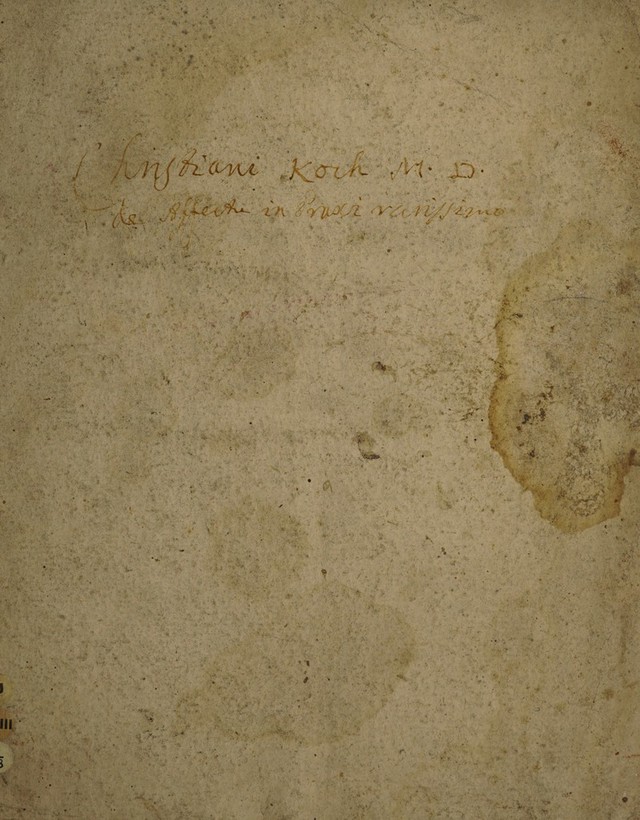 Christiani Koch M. D.
de Affectu in Praxi rarissimo